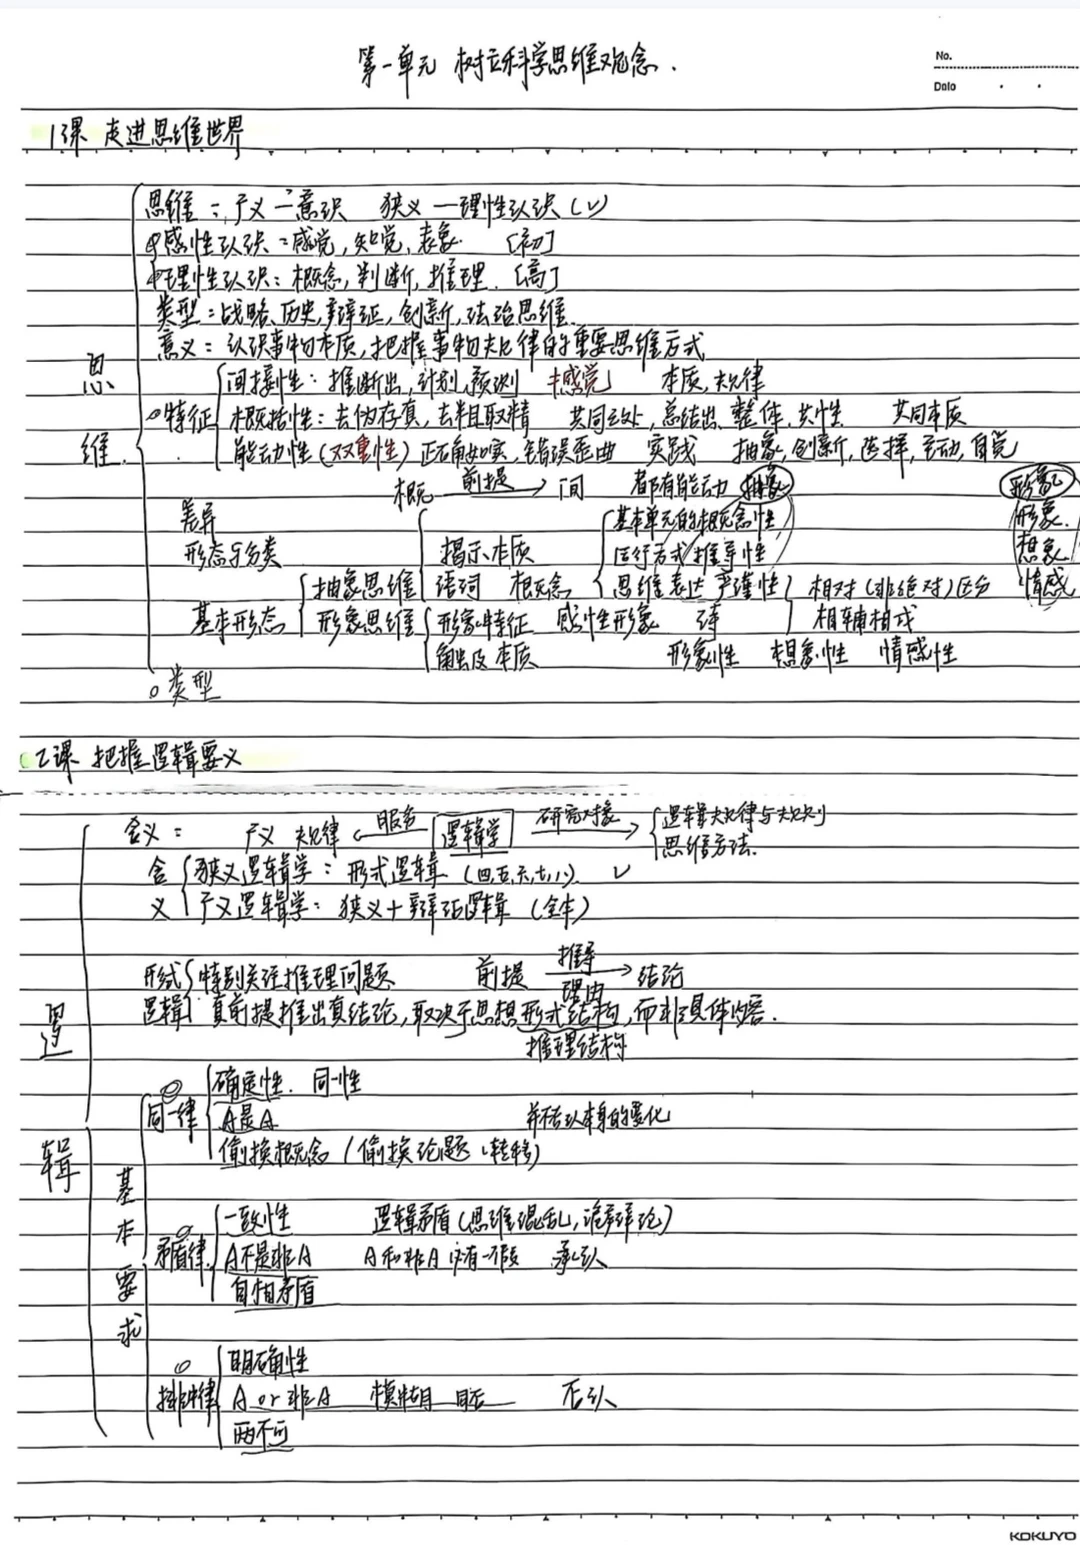 第一单元 树立科学思维观念.
No.
Date
1课 走进思维世界
思维: 广义—意识 狭义—理性认识(√)
感性认识: 感觉,知觉,表象 [初]
理性认识: 概念,判断,推理. [高]
类型: 战略、历史,辩证,创新,法治思维
意义: 认识事物本质,把握事物规律的重要思维方式
思维
特征
间接性: 推断出,计划,预测 ≠感觉 本质,规律
概括性: 去伪存真,去粗取精 共同之处,总结出,整体,共性 共同本质
能动性(双重性) 正确如实,错误歪曲 实践 抽象,创新,选择,主动,自觉
概 前提→ 间 都有能动 抽象 形象
差异
形态与分类
揭示本质 基本单元的概念性 形象
运行方式推导性 想象
基本形态 抽象思维 语词 概念 思维表达严谨性 相对(非绝对)区分 情感
形象思维 形象特征 感性形象 相辅相成
触及本质 形象性 想象性 情感性
类型
2课 把握逻辑要义
逻辑
含义: 广义 规律 ←服务 逻辑学 研究对象→ 逻辑规律与规则
思维方法.
含义
狭义逻辑学: 形式逻辑 (四,五,六,七,八). √
广义逻辑学: 狭义+辩证逻辑 (全本)
形式逻辑
特别关注推理问题 前提 推导→ 结论
理由
真前提推出真结论,取决于思想形式结构,而非具体内容.
推理结构
基本要求
同一律
确定性. 同一性
A是A 并不否认本身的变化
偷换概念 (偷换论题、转移)
矛盾律
一致性 逻辑矛盾(思维混乱,诡辩论)
A不是非A A和非A必有一假 承认
自相矛盾
排中律
明确性
A or 非A 模糊 否认
两不可
KOKUYO